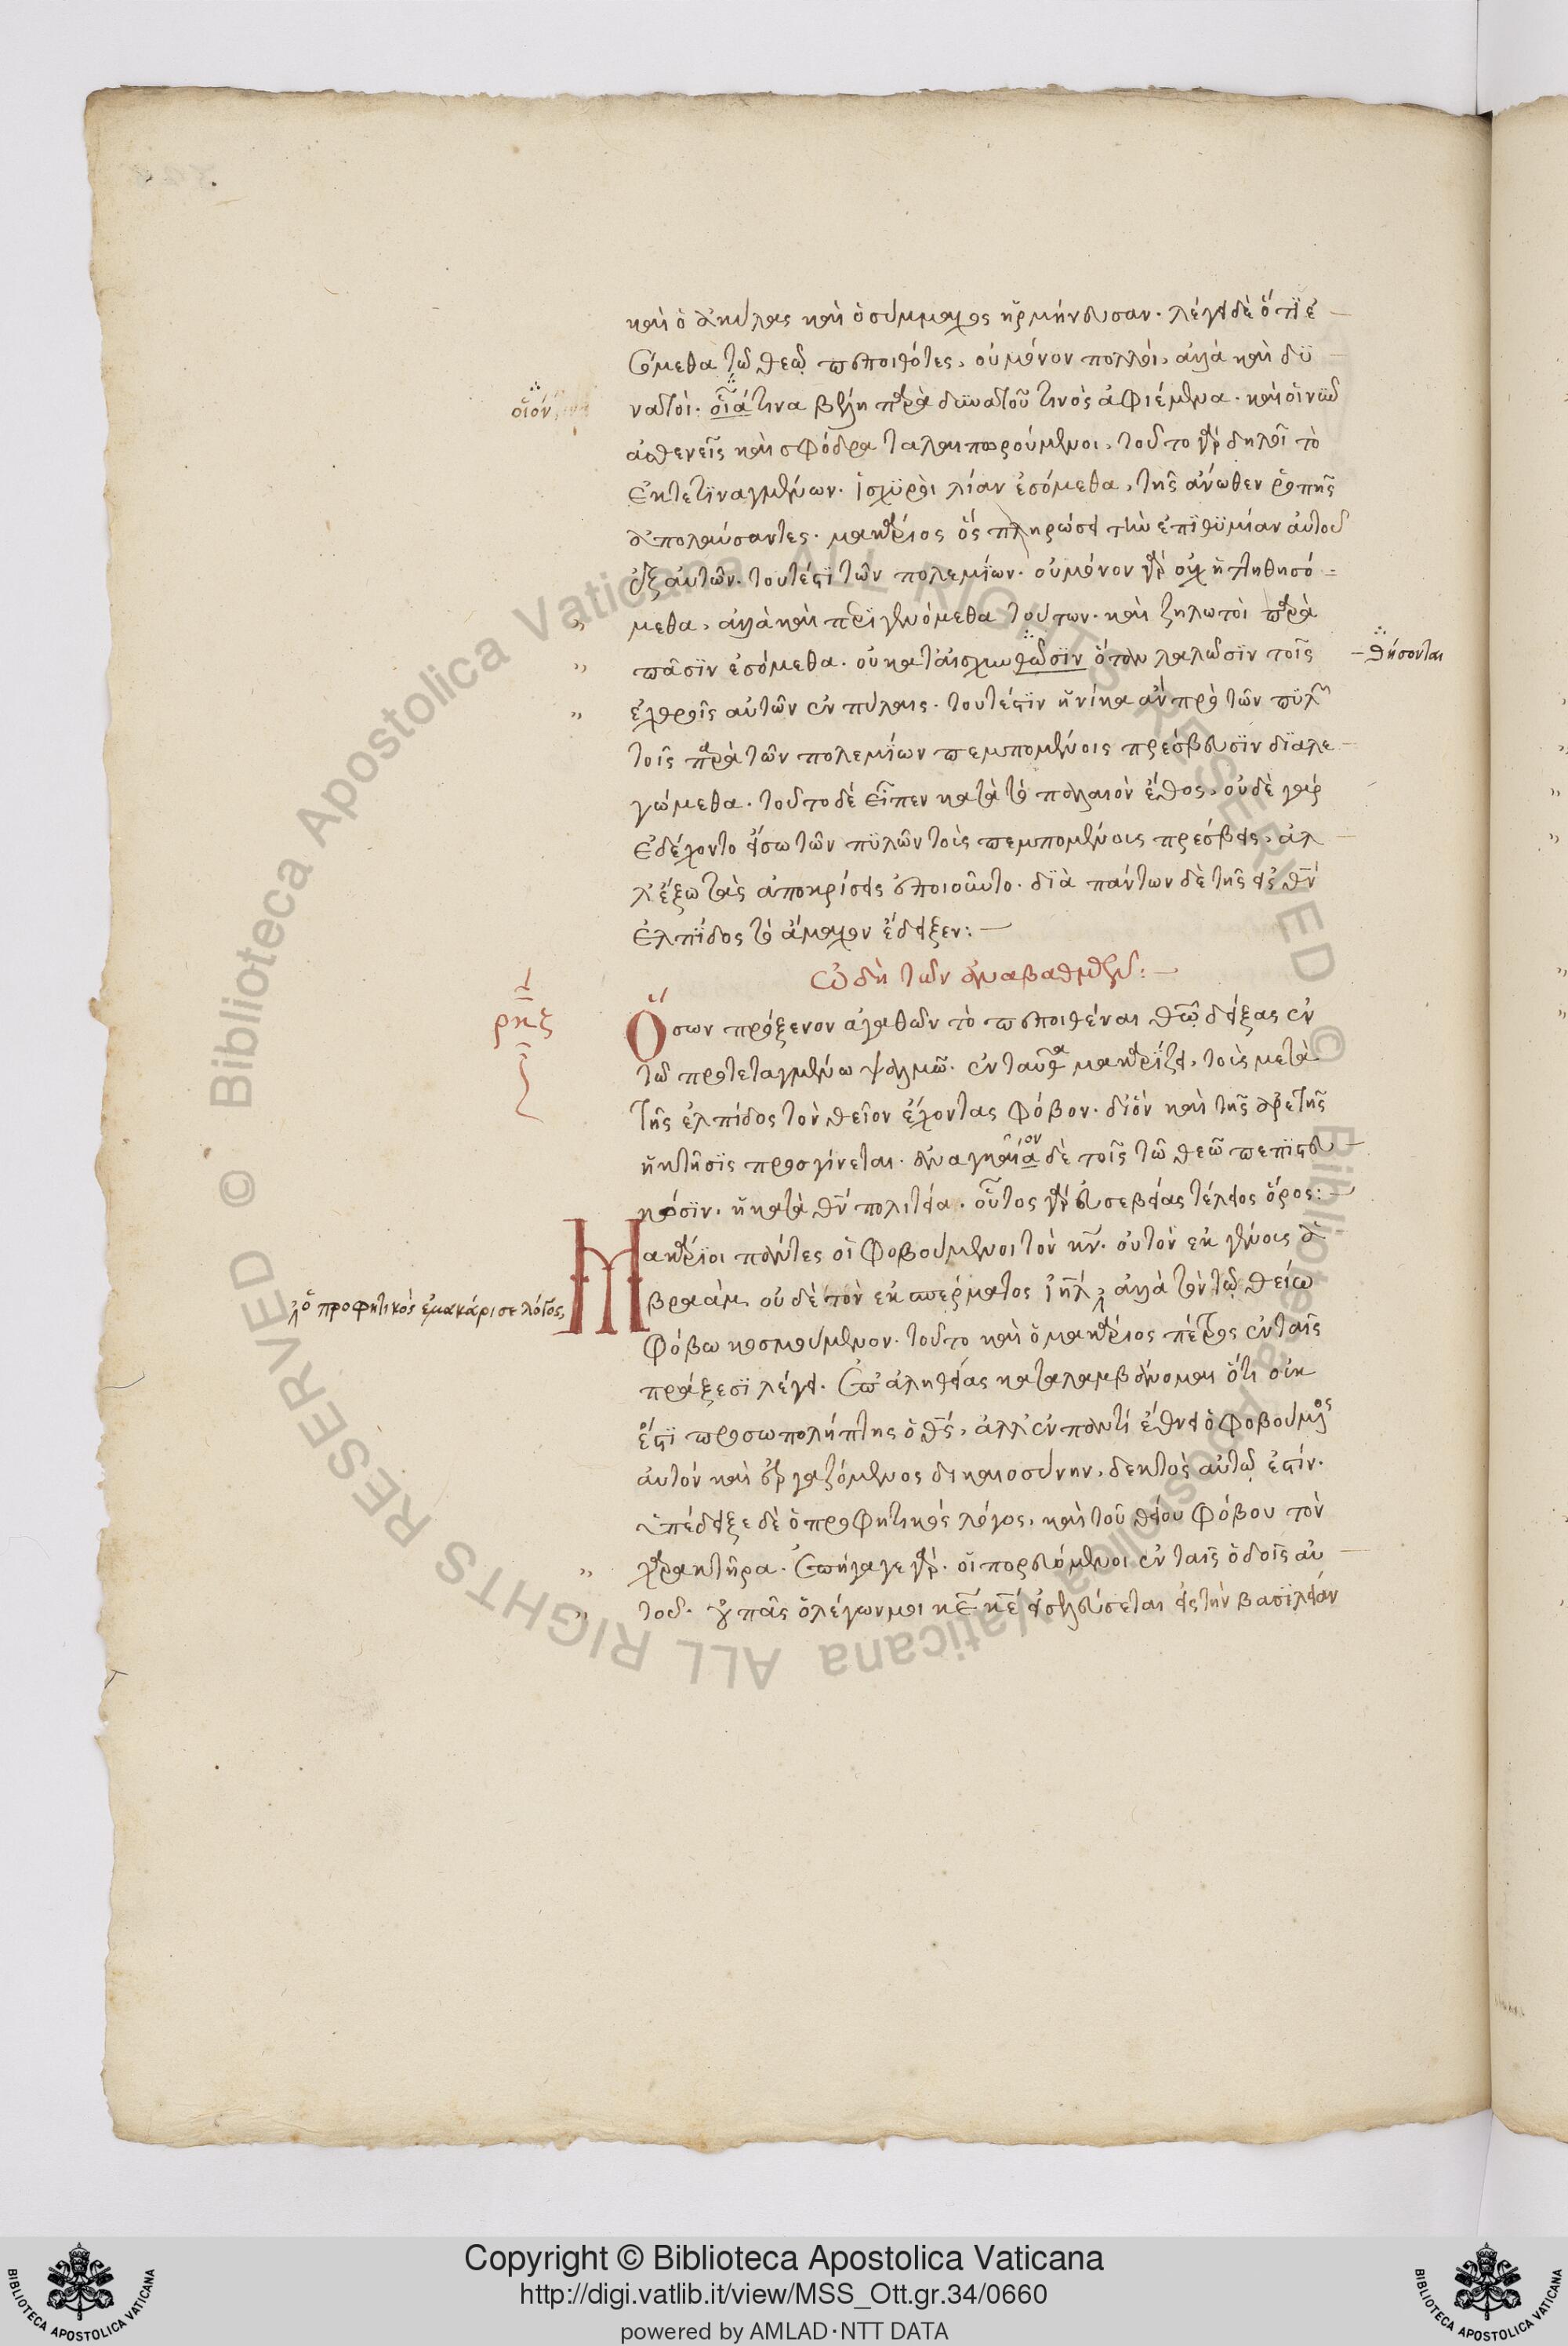 καὶ ὁ ἀκύλας καὶ ὁ σύμμαχος ἡρμήνευσαν. λέγει δὲ ὅτι ἐ
σόμεθα τῷ θεῷ πεποιθότες, οὐ μόνον πολλοὶ, ἀλλὰ καὶ δϋ
οἷον
νατοὶ. οἷά τινα βέλη παρὰ δυνατοῦ τινὸς ἀφιέμενα. καὶ οἱ νῦν
ἀσθενεῖς καὶ σφόδρα ταλαιπωρούμενοι, τοῦτο γὰρ δηλοῖ τὸ
ἐκτετϊναγμένων. ἰσχϋροὶ λίαν ἐσόμεθα, τῆς ἄνωθεν ῥοπῆς
ἀπολαύσαντες. μακάριος ὃς πληρώσει τὴν ἐπϊθϋμίαν αὐτοῦ
ἐξ αὐτῶν. τουτέστι τῶν πολεμίων. οὐ μόνον γὰρ οὐχ ἡττηθησό=
μεθα, ἀλλὰ καὶ περιγενόμεθα τούτων. καὶ ζηλωτοὶ παρὰ
πᾶσϊν ἐσόμεθα. οὐ καταισχυνθῶσϊν ὅταν λαλῶσϊν τοῖς
– θήσονται
ἐχθροῖς αὐτῶν ἐν πύλαις. τουτέστϊν ἡνίκα ἂν πρὸ τῶν πϋλῶν
τοῖς παρὰ τῶν πολεμίων πεμπομένοις πρέσβευσϊν δϊαλε
γώμεθα. τοῦτο δὲ εἶπεν κατὰ τὸ παλαιὸν ἔθος, οὐδὲ γὰρ
ἐδέχοντο εἴσω τῶν πϋλῶν τοὺς πεμπομένους πρέσβεις, ἀλ
λ' ἔξω τὰς ἀποκρίσεις ἐποιοῦντο. δϊὰ πάντων δὲ τῆς εἰς θν
ἐλπίδος τὸ ἄμαχον ἔδειξεν:—
Ὠδὴ τῶν ἀναβαθμῶν:—
ρκζ
Ὅσων πρόξενον ἀγαθῶν τὸ πεποιθέναι θῶ δείξας ἐν
τῷ προτεταγμένω ψαλμῶ. ἐνταῦθα μακαρίζει, τοὺς μετὰ
τῆς ἐλπίδος τὸν θεῖον ἔχοντας φόβον. δι' ὃν καὶ τῆς ἀρετῆς
ἡ κτῆσϊς προσγίνεται. ἀναγκαία δὲ τοῖς τῶ θεῶ πεπϊστευ
κόσϊν. ἡ κατὰ θν πολιτεία. οὗτος γὰρ εὐσεβείας τέλειος ὅρος:—
Μακάριοι πάντες οἱ φοβούμενοι τὸν κν. οὐ τὸν ἐκ γένους ἀ
ὁ προφητικὸς ἐμακάρισε λόγος,
βραὰμ, οὐδὲ τὸν ἐκ σπέρματος ιηλ, ἀλλὰ τὸν τῷ θείω
φόβω κοσμούμενον. τοῦτο καὶ ὁ μακάριος πέτρος ἐν ταῖς
πράξεσϊ λέγει. ἐπ' ἀληθείας καταλαμβάνομαι ὅτι οὐκ
ἔστϊ προσωπολήπτης ὁ θς, ἀλλ' ἐν παντὶ ἔθνει ὁ φοβούμενος
αὐτὸν καὶ ἐργαζόμενος δικαιοσύνην, δεκτὸς αὐτῷ ἐστίν.
ὑπέδειξε δὲ ὁ προφητικὸς λόγος, καὶ τοῦ θείου φόβου τὸν
χαρακτῆρα. ἐπήγαγε γὰρ. οἱ πορευόμενοι ἐν ταῖς ὁδοῖς αὐ
τοῦ. οὐ πᾶς ὁ λέγων μοι κε κε εἰσελεύσεται εἰς τὴν βασϊλείαν
Copyright © Biblioteca Apostolica Vaticana
http://digi.vatlib.it/view/MSS_Ott.gr.34/0660
powered by AMLAD·NTT DATA
BIBLIOTECA APOSTOLICA VATICANA
BIBLIOTECA APOSTOLICA VATICANA
© Biblioteca Apostolica Vaticana ALL RIGHTS RESERVED © Biblioteca Apostolica Vaticana ALL RIGHTS RESERVED